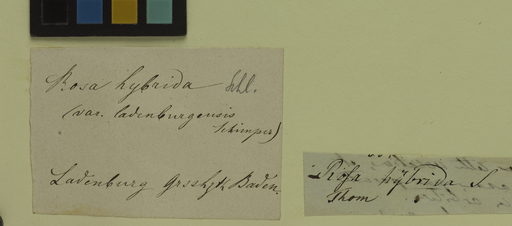 Rosa hybrida Schl.
(var. ladenburgensis
Schimper)
Ladenburg Grsshzt Baden.
Rosa hybrida S
Thom